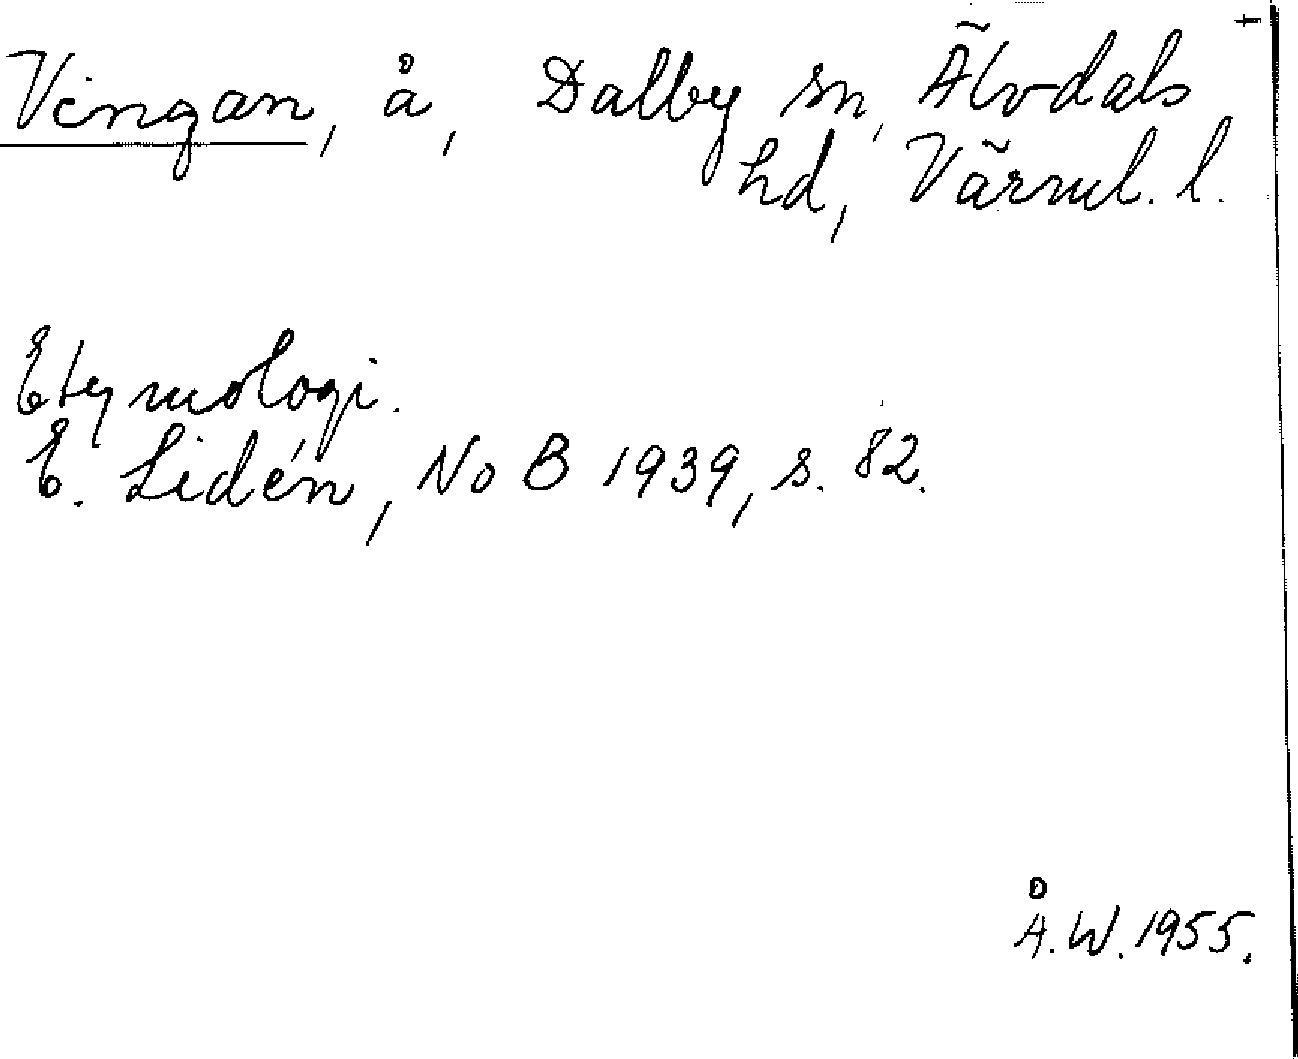 Vingan, å, Dalby sn, Älvdals
hd, Värml. l.
Etymologi.
E. Lidén, NoB 1939, s. 82.
Å.W. 1955.